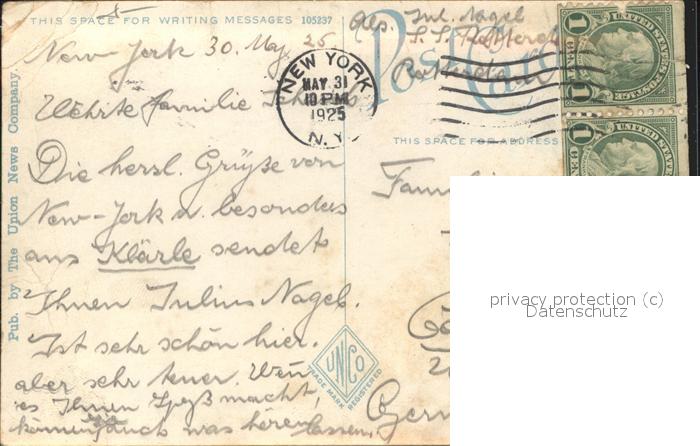 THIS SPACE FOR WRITING MESSAGES 105237
New-York 30. May 25
Werte Familie
Die herzl. Grüße von
New-York u. besonders
ans Klärle sendet
Ihnen Julius Nagel.
Ist sehr schön hier.
aber sehr teuer. Wenn
es Ihnen Spaß macht,
können auch was hören lassen.
Pub. by The Union News Company.
NEW YORK
MAY 31
10 PM
1925
N.Y.
UNCO
TRADE MARK REGISTERED
Abs. Jul. Nagel
S.S.
Rotterdam
Post Card
THIS SPACE FOR ADDRESS
UNITED STATES POSTAGE
1
1
UNITED STATES POSTAGE
1
1
privacy protection (c)
Datenschutz